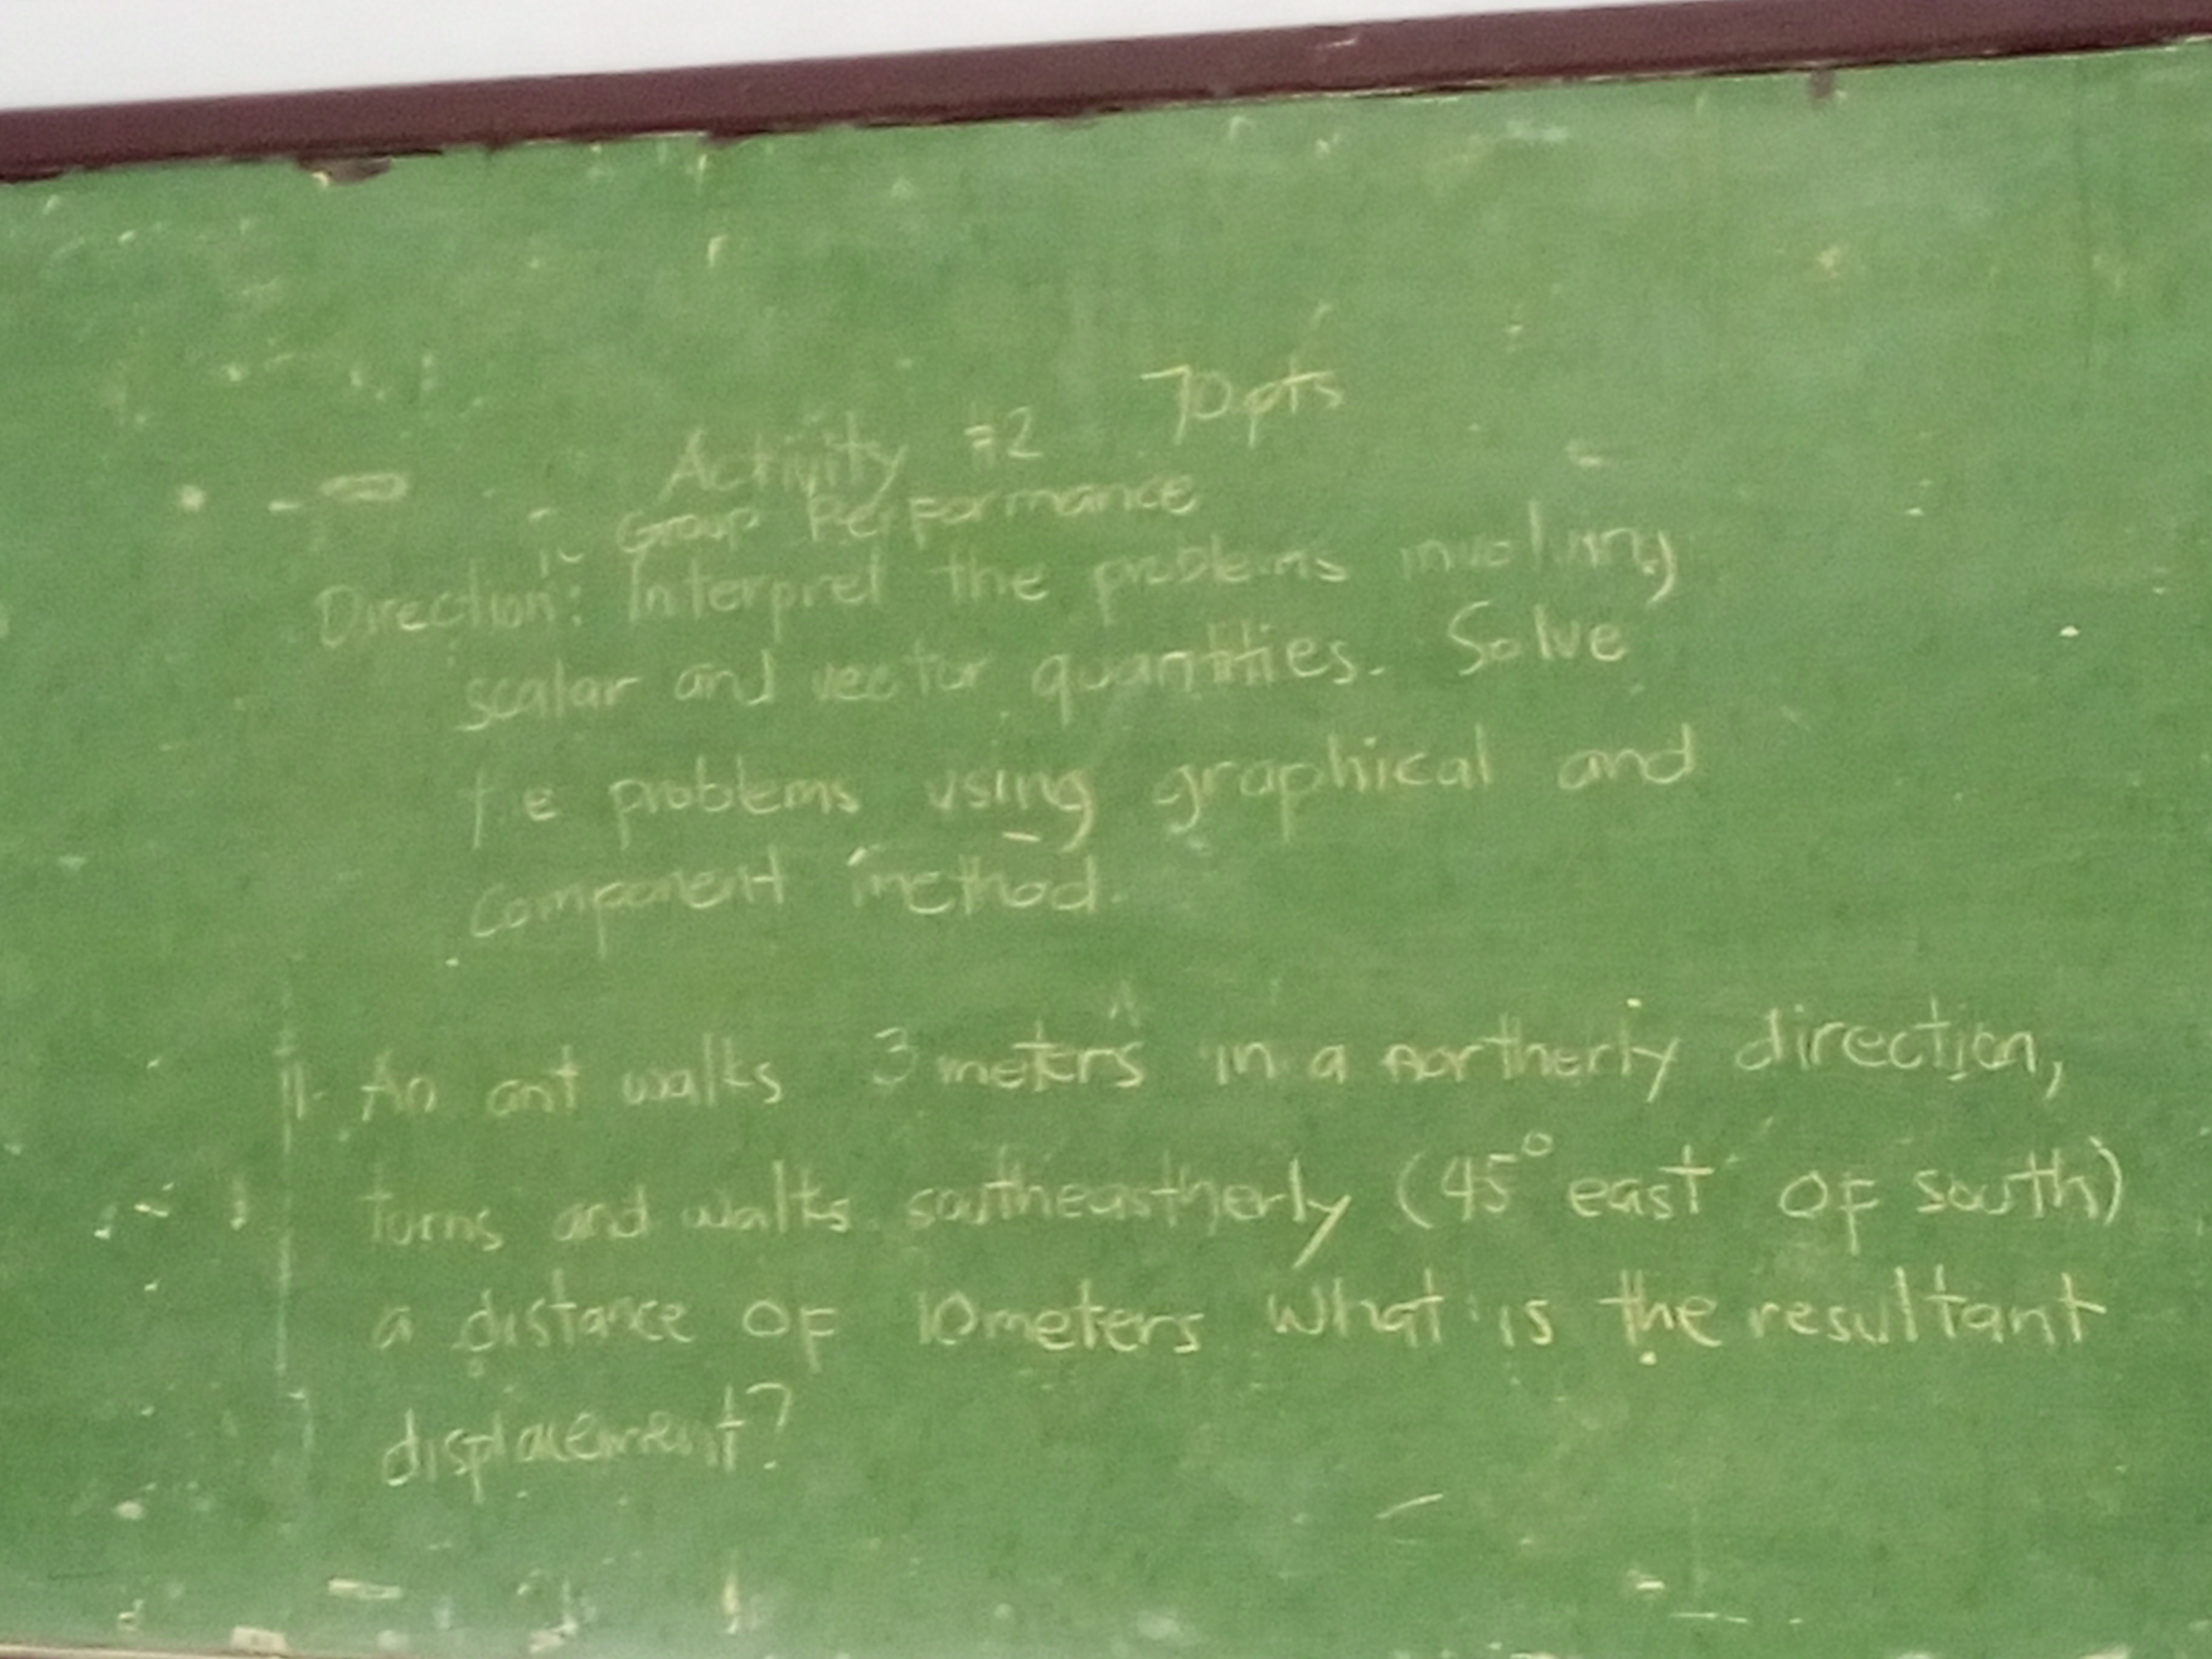 Activity #2 70 pts
Group Performance
Direction: Interpret the problems involving
scalar and vector quantities. Solve
the problems using graphical and
component method.
1. An ant walks 3 meters in a northerly direction,
turns and walks southeastherly (45° east of south)
a distance of 10 meters What is the resultant
displacement?